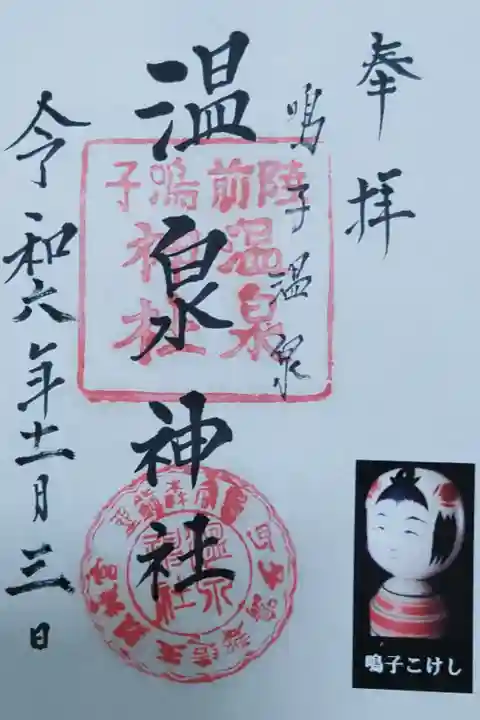 奉拝
鳴子温泉
温泉神社
令和六年十一月三日
陸前鳴子
温泉
神社
鳴子こけし